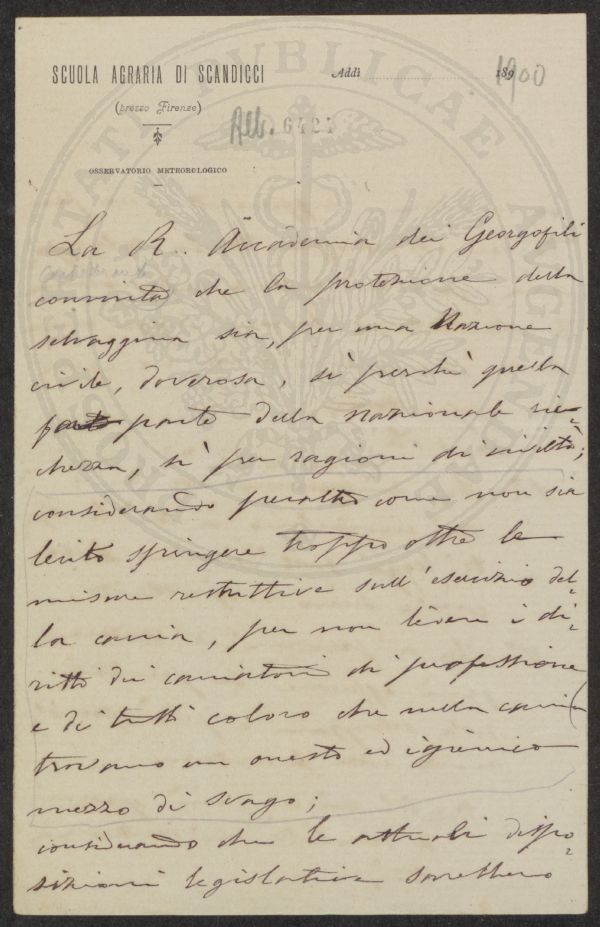 SCUOLA AGRARIA DI SCANDICCI
(presso Firenze)
OSSERVATORIO METEOROLOGICO
Addì 189 1900
All. 6421
La R. Accademia dei Georgofili
convinta che la protezione della
selvaggina sia, per una Nazione
civile, doverosa, sì perchè quella
parte della nazionale ric-
chezza, sì per ragioni di civiltà;
considerando peraltro come non sia
lecito spingere troppo oltre le
misure restrittive sull'esercizio del-
la caccia, per non ledere i di-
ritti dei cacciatori di professione
e di tutti coloro che nella caccia
trovano un onesto ed igienico
mezzo di svago;
considerando che le attuali dispo-
sizioni legislative sarebbero